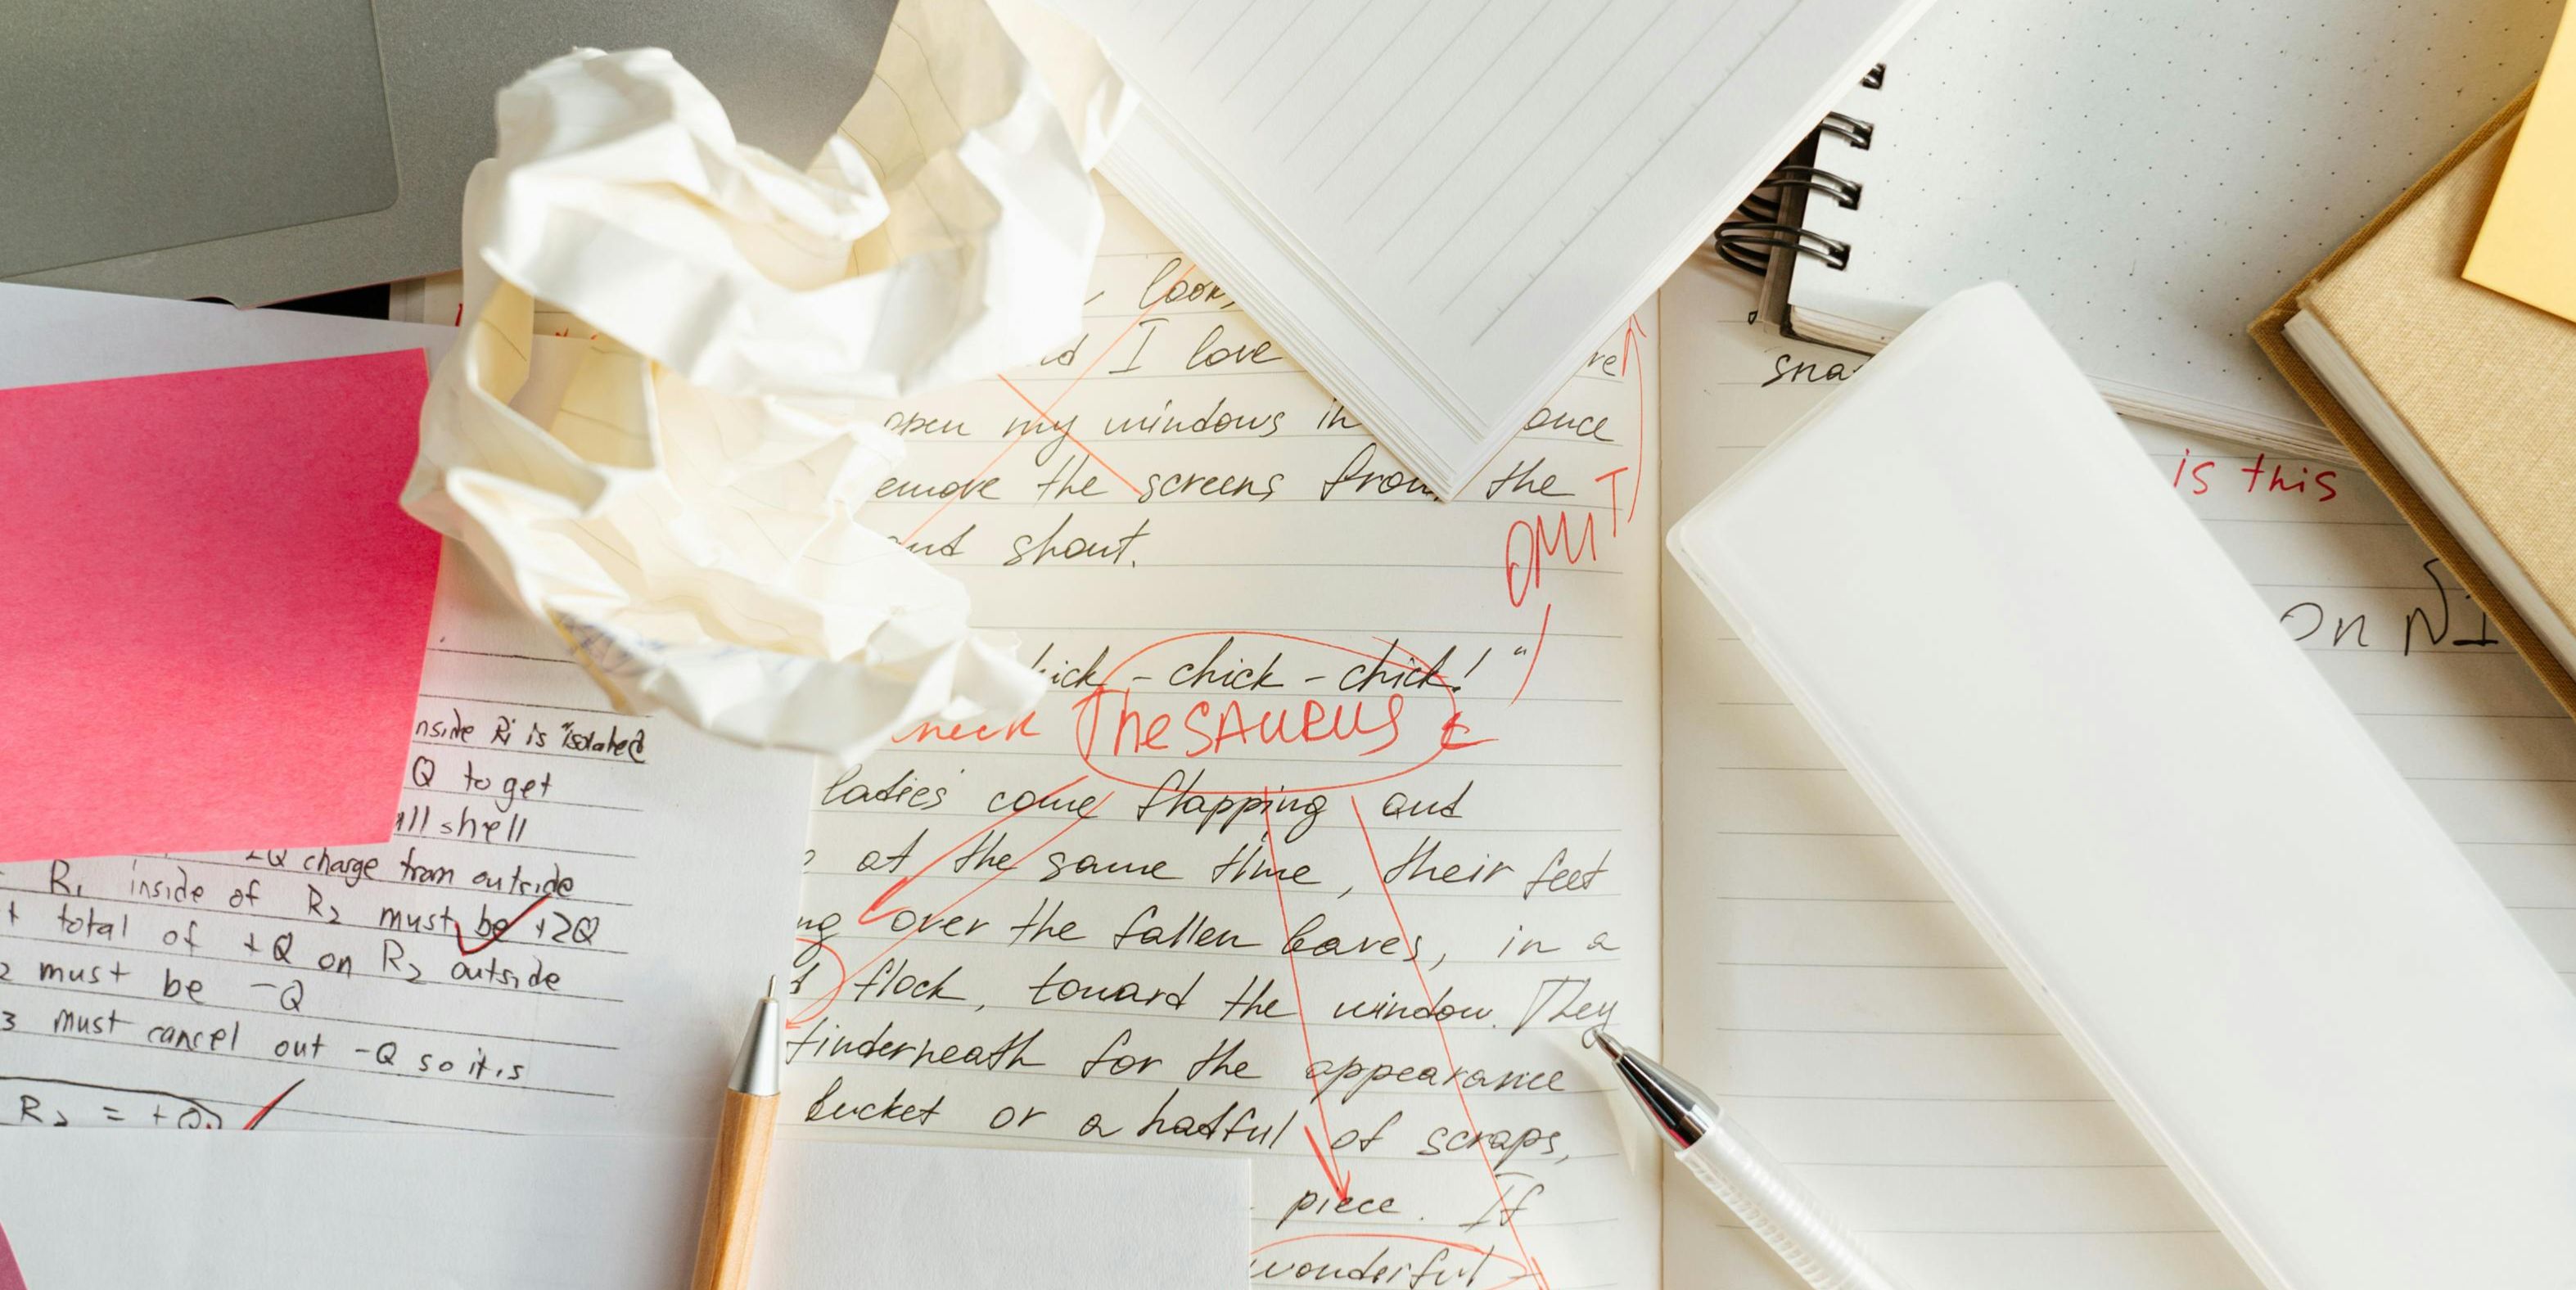 look
I love
open my windows in once
the screens from the
OMIT
shout.
- chick - chick! "
Thesaurus
ladies come flapping and
at the same time, their feet
over the fallen leaves, in a
flock, toward the window. They
underneath for the appearance
bucket or a hatful of scraps,
piece. If
wonderful
R1 is "isolated
Q to get
shell
charge from outside
R1 inside of R2 must be +2Q
total of +Q on R2 outside
2 must be -Q
3 must cancel out -Q so it is
R2 =
is this
on